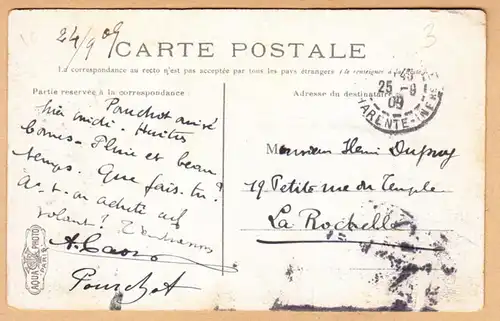 24/9 09
3
CARTE POSTALE
La correspondance au recto n'est pas acceptée par tous les pays étrangers (Se renseigner à la Poste)
Partie réservée à la correspondance
Adresse du destinataire
25-9
09
CHARENTE-INFRE
Pouchot arrivé
midi.
Pluie et beau
temps. Que fais-tu?
As-tu acheté un
volant?
Pouchot
Monsieur Henri Dupuy
19 Petite rue du Temple
La Rochelle
AQUA PHOTO
PARIS